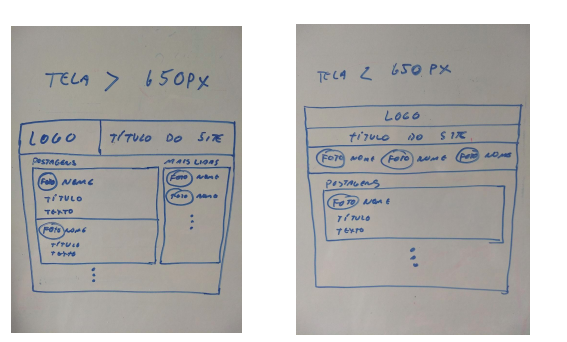 TELA > 650PX
LOGO TÍTULO DO SITE
POSTAGENS
FOTO NOME
TÍTULO
TEXTO
FOTO NOME
TÍTULO
TEXTO
MAIS LIDAS
FOTO NOME
FOTO NOME
TELA < 650PX
LOGO
TÍTULO DO SITE
FOTO NOME FOTO NOME FOTO NOME
POSTAGENS
FOTO NOME
TÍTULO
TEXTO